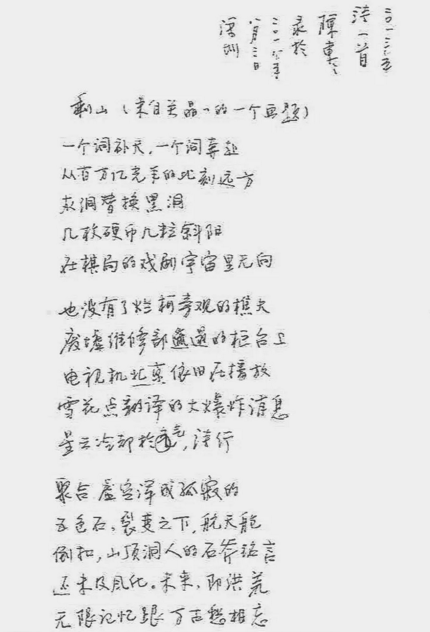 诗一首
陳東東
录於
八月三日
深圳
剩山（来自关晶晶的一个画题）
一个词补天，一个词奔赴
从百万亿光年的此刻远方
灰洞替换黑洞
几枚硬币几粒斜阳
在棋局的戏剧宇宙里无向
也没有了烂柯旁观的樵夫
废墟维修部邋遢的柜台上
电视机依旧在播放
雪花点翻译的大爆炸消息
星云冷却於，流行
聚合虚空浑成孤寂的
五色石。裂变之下，航天舱
倒扣，山顶洞人的石斧
还未及风化。未来，即洪荒
无限记忆跟万古愁相忘